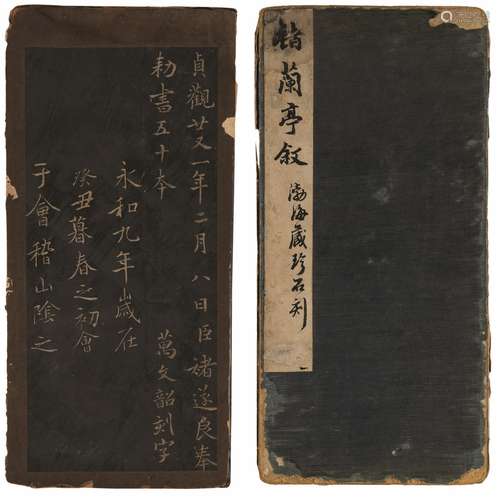 貞觀廿又一年二月八日臣褚遂良奉
勅書五十本　萬文韶刻字
永和九年歲在
癸丑暮春之初會
于會稽山陰之
褚蘭亭叙
渤海藏珍石刻